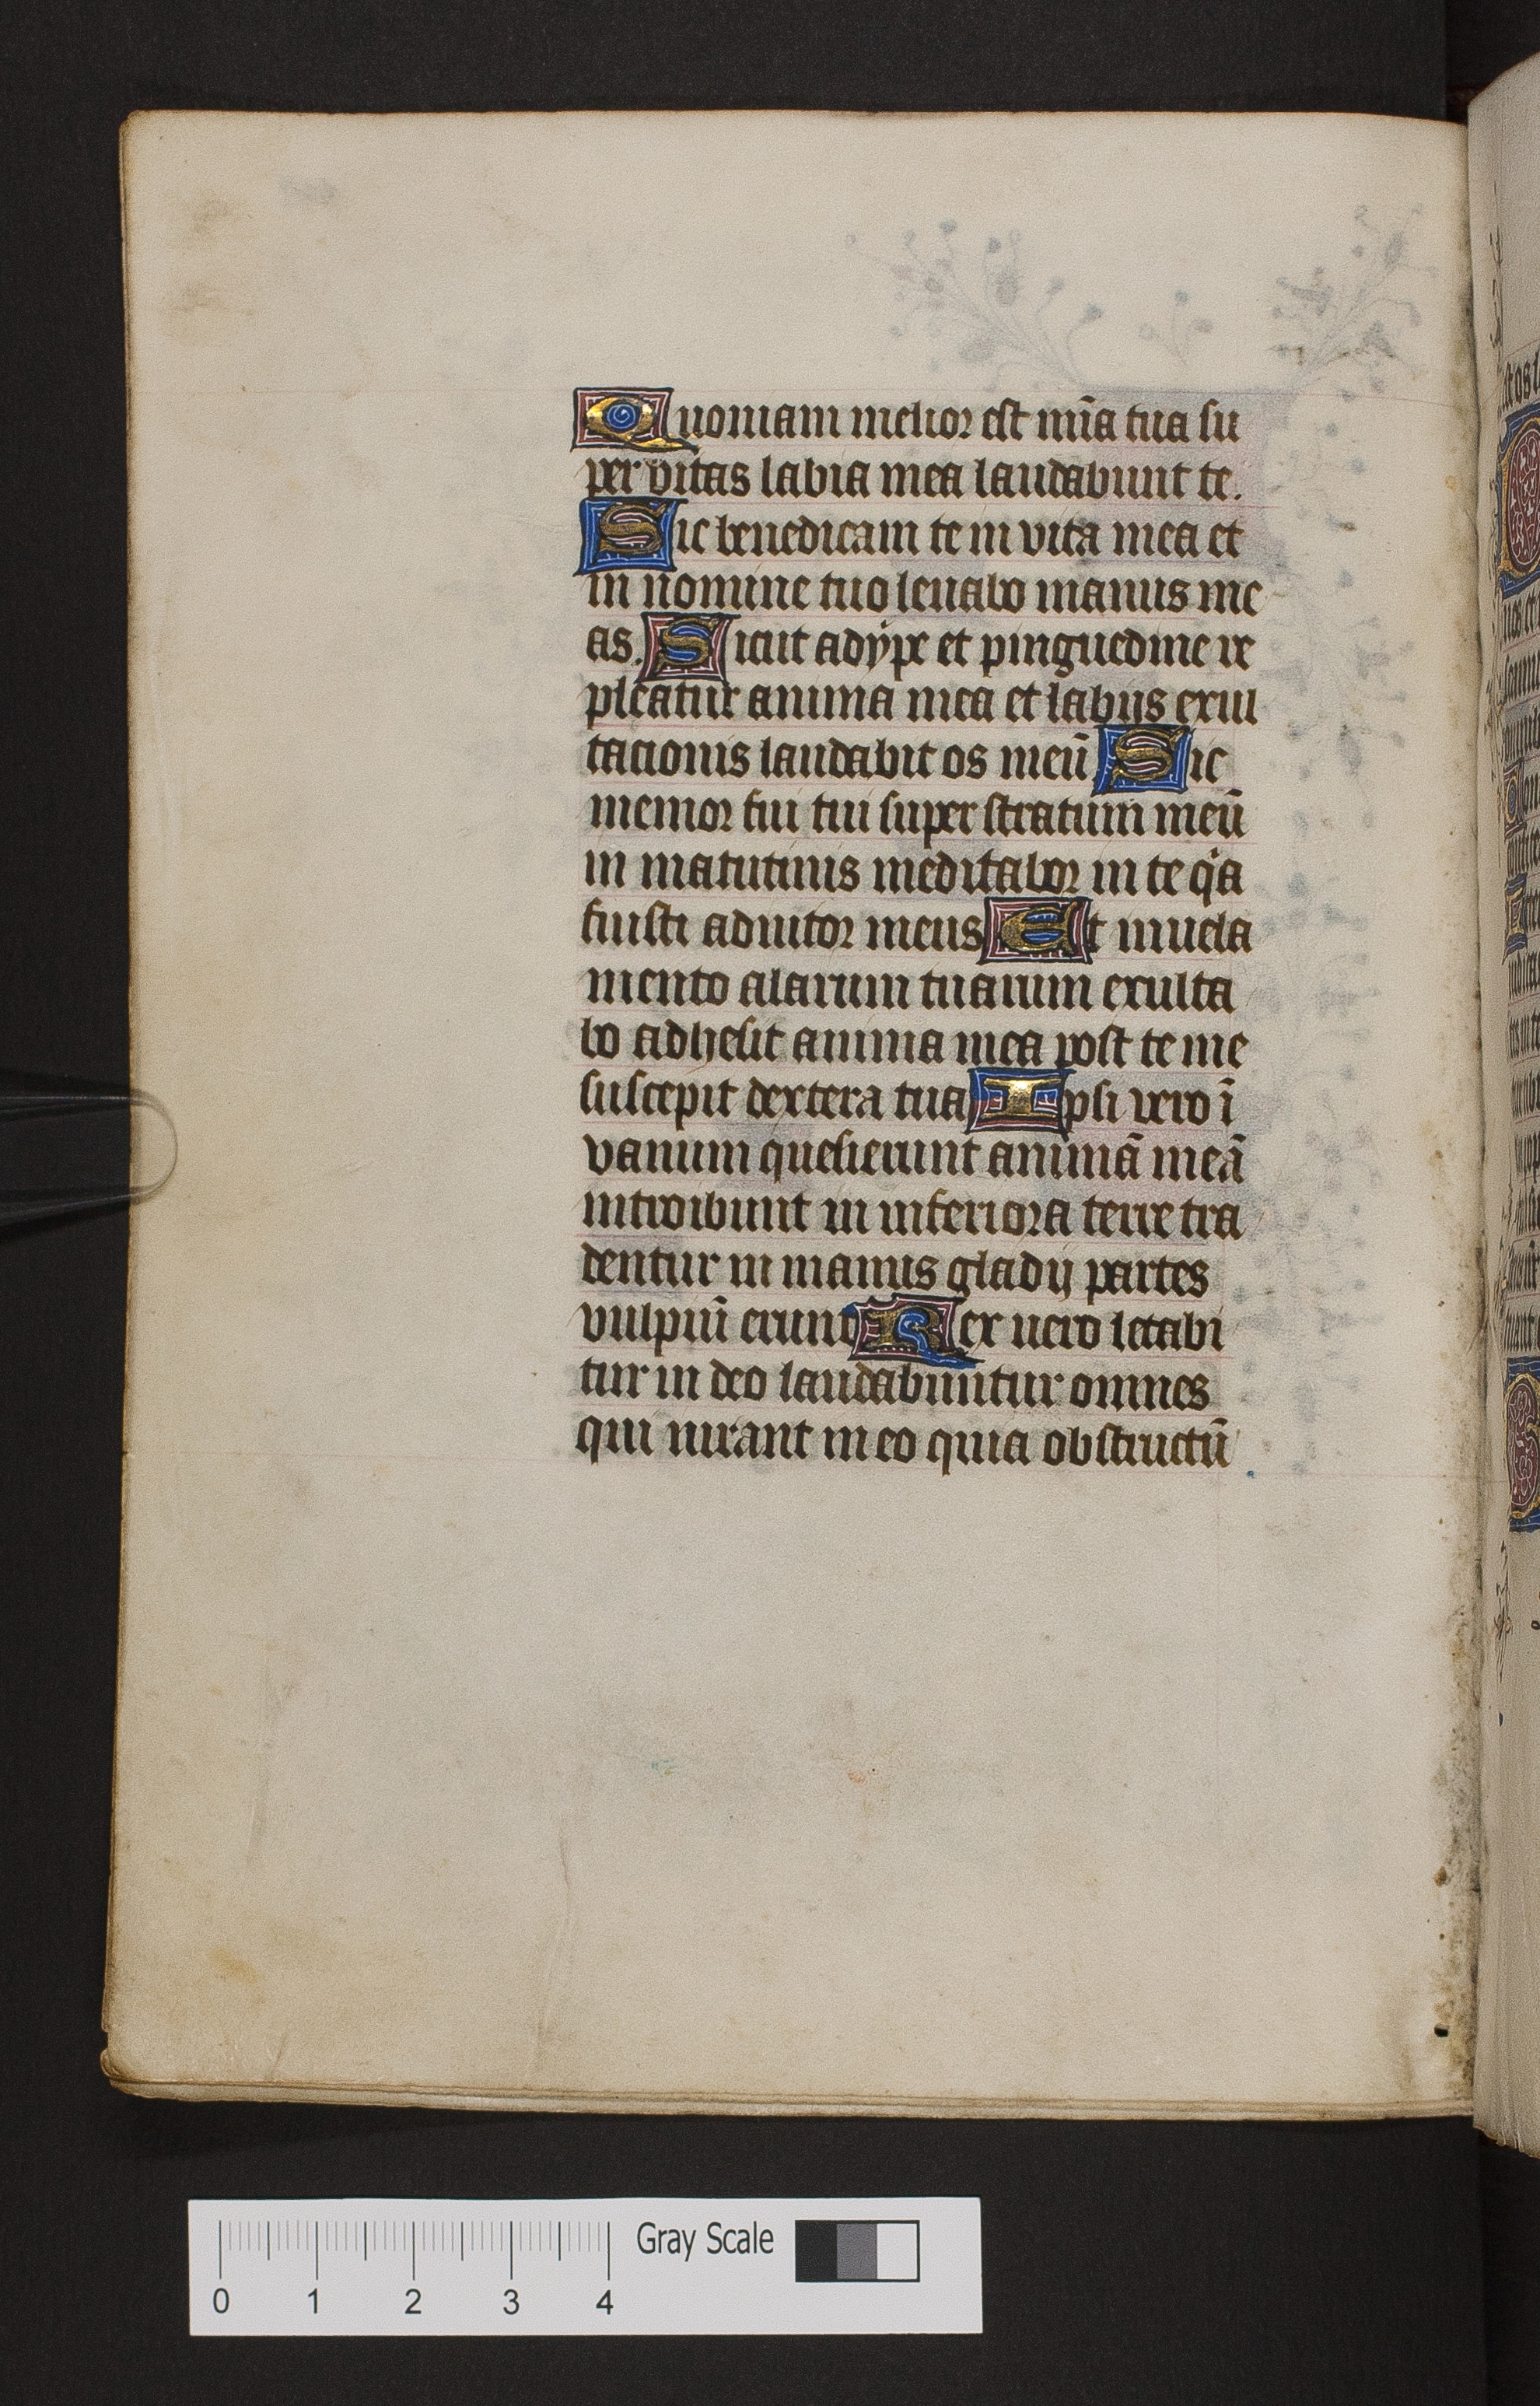 Quoniam melior est mīa tua su
per vitas labia mea laudabunt te.
Sic benedicam te in vita mea et
in nomine tuo leuabo manus me
as. Sicut adype et pinguedine re
pleatur anima mea et labijs exul
tacionis laudabit os meū Sic
memor fui tui super stratum meū
in matutinis meditabor in te qͥa
fuisti adiutor meus Et in uela
mento alarum tuarum exulta
bo adhesit anima mea post te me
suscepit dextera tua Ipsi vero ī
vanum quesierunt animā meā
introibunt in inferiora terre tra
dentur in manus gladij partes
vulpiū erunt Rex uero letabi
tur in deo laudabuntur omnes
qui iurant in eo quia obstructū
Gray Scale
0 1 2 3 4